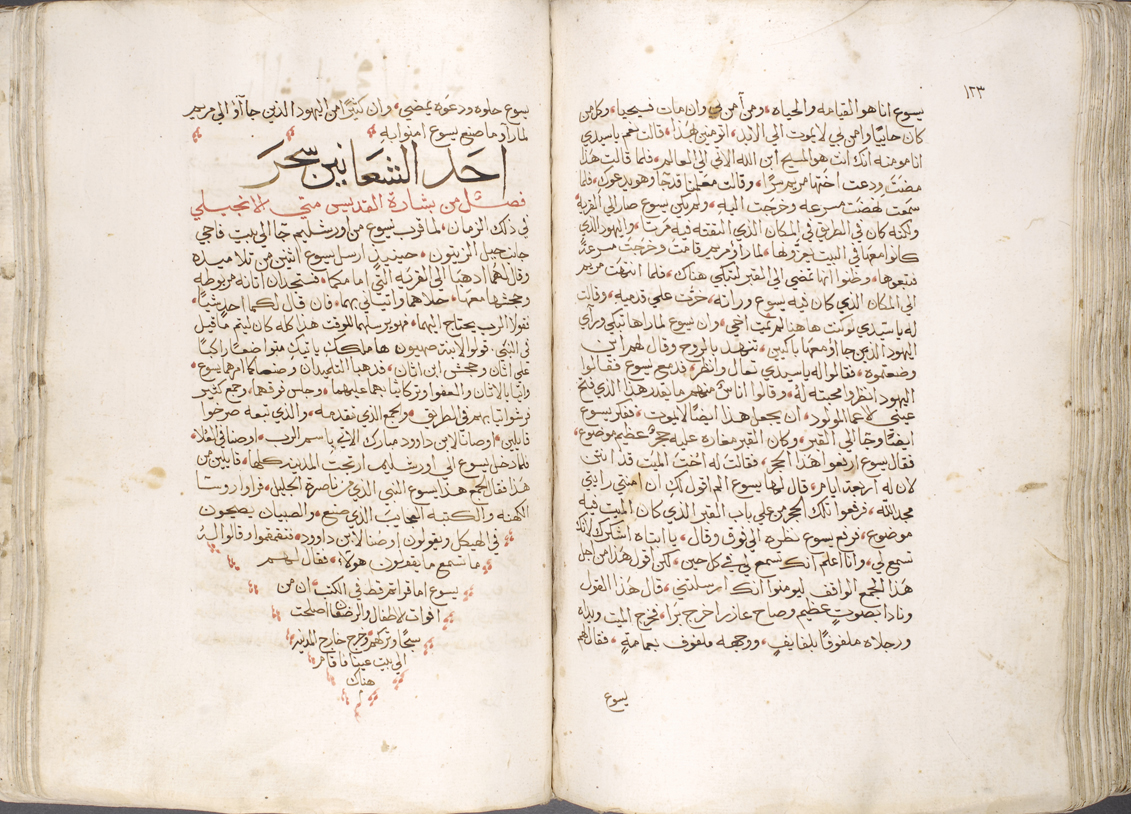 ١٢٣
يسوع انا هو القيامه والحياه ومن أمن بي وان مات فسيحيا وكل من
كان حاييًا وامن بي لا يموت الي الابد اتومنين بهذا قالت نعم ياسيدي
انا مومنه انك انت هو المسيح ابن الله الاتي الي العالم فلما قالت هذا
مضت ودعت اختها مريم سرًا وقالت معلمنا قد جا وهو يدعوك فلما
سمعت نهضت مسرعه وخرجت اليه ولم يكن يسوع صار الي القريه
ولكنه كان في الطريق في المكان الذي الفته فيه مرتا واليهود الذي
كانوا معها في البيت يعزونها لما راو مريم قامت وخرجت مسرعة
فتبعوها وظنوا انها تمضي الي القبر لتبكي هناك فلما انتهت مريم
الي المكان الذي كان فيه يسوع وراته خرت علي قدميه وقالت
له ياسيدي لو كنت هاهنا لم يمت اخي وان يسوع لما راها تبكي وراي
اليهود الذين جاؤ معها باكيين تنهد بالروح وقال لهم اين
وضعتموه فقالوا له ياسيدي تعال وانظر فدمع يسوع فقالوا
اليهود انظروا محبته له وقالوا اناس منهم ما يقدر هذا الذي فتح
عيني الاعما المولود ان يجعل هذا ايضًا لا يموت ففكر يسوع
ايضًا وجا الي القبر وكان القبر مغاره عليه حجرٌ عظيم موضوع
فقال يسوع ارفعوا هذا الحجر فقالت له اخت الميت قد انتن
لان له اربعة ايام قال لها يسوع الم اقول لك ان امنتي رايتي
مجد الله فرفعوا تلك الحجر من علي باب القبر الذي كان الميت فيه
موضوع فرفع يسوع نظره الي فوق وقال يا ابتاه اشكرك لانك
تسمع لي وانا اعلم انك تسمع لي في كل حين لكن اقول هذا من اجل
هذا الجمع الواقف ليومنوا انك ارسلتني قال هذا القول
ونادا بصوتٍ عظيم وصاح عازر اخرج برًا فخرج الميت ويداه
ورجلاه ملفوفًا بلفايف ووجهه ملفوف بعمامة فقال لهم
يسوع
يسوع حلوه ودعوه يمضي وان كثيرًا من اليهود الذين جاآؤ الي مريم
لما رآو ما صنع يسوع امنوا به
احد الشعانين سحر
فصل من بشارة القديس متي الانجيلي
في ذلك الزمان لما قرب يسوع من اورشليم جا الي بيت فاجي
جانب جبل الزيتون حينيذٍ ارسل يسوع اتنين من تلاميده
وقال لهما ادهبا الي القريه التي امامكما فستجدان اتانه مربوطه
وجحشها معها حلاهما واتياني بهما فان قال لكما احدٍ شيئًا
فقولا الرب يحتاج اليهما فهو يرسلهما للوقت هذا كله كان ليتم ما قيل
في النبي قولوا لابنة صهيون ها ملكك ياتيك متواضعًا راكبًا
علي اتان وجحش ابن اتان فدهبا التلميدان وصنعا كما امرهما يسوع
واتيا بالاتان والعفو وتركا ثيابهما عليهما وجلس فوقهما وجمع كثير
فرشوا ثيابهم في الطريق والجمع الذي تقدمه والذي تبعه صرخوا
قايلين اوصانا لابن داوود مبارك الاتي باسم الرب اوصنا في العلا
فلما دخل يسوع الي اورشليم ارتجت المدينه كلها قايلين من
هذا فقال الجمع هذا يسوع النبي الذي من ناصرة الجليل فراوا روسا
الكهنه والكتبه العجايب الذي صنع والصبيان يصيحون
في الهيكل ويقولون اوصنا لابن داوود فتقمقموا وقالوا له
ما تسمع ما يقولون هولاء فقال لهم
يسوع اما قراتم قط في الكتب ان من
افواه الاطفال والرضعان اصلحت
سبحًا وتركهم وخرج خارج المدينه
الي بيت عينا فاقام
هناك